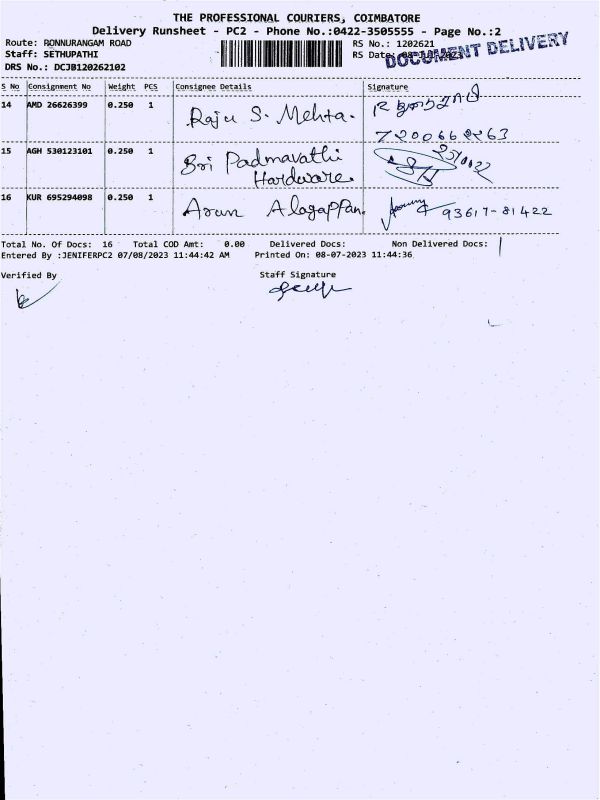 THE PROFESSIONAL COURIERS, COIMBATORE
Delivery Runsheet - PC2 - Phone No.:0422-3505555 - Page No.:2
Route: RONNURANGAM ROAD
RS No.: 1202621
Staff: SETHUPATHI
RS Date: 08-Jul-2023
DOCUMENT DELIVERY
DRS No.: DCJB120262102
S No Consignment No Weight PCS Consignee Details Signature
14 AMD 26626399 0.250 1 Raju S. Mehta.
15 AGH 530123101 0.250 1 Sri Padmavathi
Hardware.
16 KUR 695294098 0.250 1 Arun Alagappan. 93617-81422
Total No. Of Docs: 16 Total COD Amt: 0.00 Delivered Docs: Non Delivered Docs:
Entered By :JENIFERPC2 07/08/2023 11:44:42 AM Printed On: 08-07-2023 11:44:36
Verified By Staff Signature